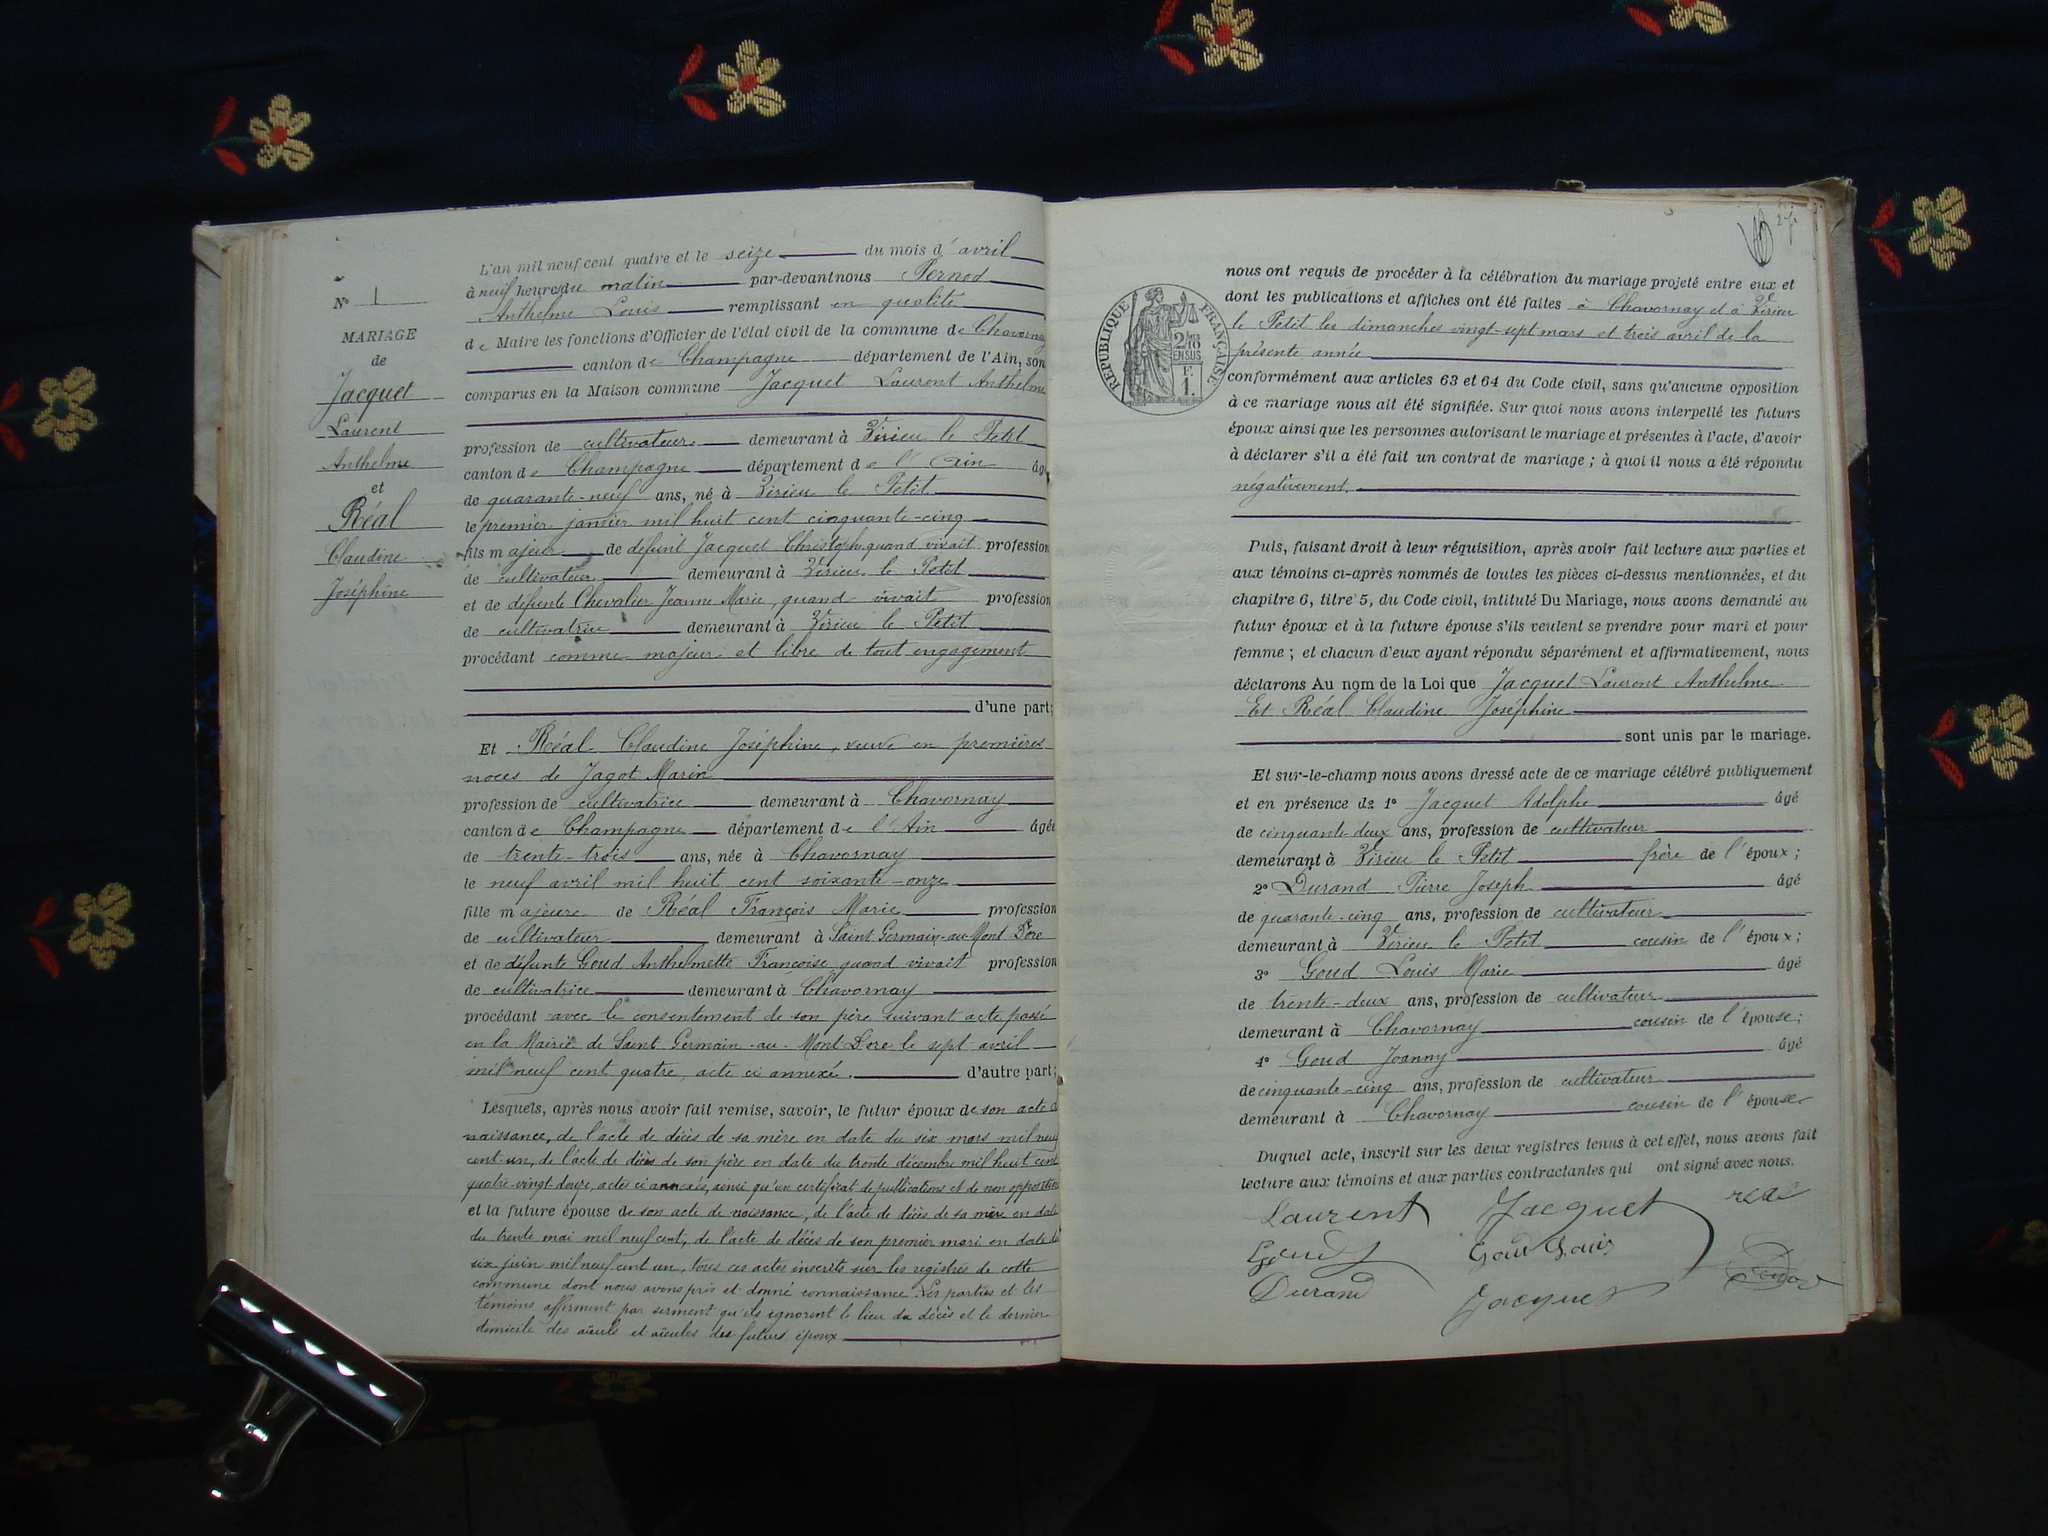 N° 1
MARIAGE
de
Jacquet
Laurent
Anthelme
et
Réal
Claudine
Joséphine
L'an mil neuf cent quatre et le seize du mois d'avril
à neuf heures du matin par-devant nous Pernod
Anthelme Louis remplissant en qualité
de Maire les fonctions d'Officier de l'état civil de la commune de Chavornay
canton de Champagne département de l'Ain, son
comparus en la Maison commune Jacquet Laurent Anthelme
profession de cultivateur demeurant à Virieu le Petit
canton de Champagne département de l'Ain âgé
de quarante-neuf ans, né à Virieu le Petit
le premier janvier mil huit cent cinquante-cinq
fils majeur de défunt Jacquet Christophe quand vivait profession
de cultivateur demeurant à Virieu le Petit
et de défunte Chevalier Jeanne Marie, quand vivait profession
de cultivatrice demeurant à Virieu le Petit
procédant comme majeur et libre de tout engagement
d'une part;
Et Réal Claudine Joséphine, veuve en premières
noces de Jagot Marin
profession de cultivatrice demeurant à Chavornay
canton de Champagne département de l'Ain âgée
de trente-trois ans, née à Chavornay
le neuf avril mil huit cent soixante-onze
fille majeure de Réal François Marie profession
de cultivateur demeurant à Saint Germain-au-Mont D'ore
et de défunte Goud Anthelmette Françoise quand vivait profession
de cultivatrice demeurant à Chavornay
procédant avec le consentement de son père suivant acte passé
en la Mairie de Saint Germain-au-Mont D'ore le sept avril
mil neuf cent quatre, acte ci annexé. d'autre part;
Lesquels, après nous avoir fait remise, savoir, le futur époux de son acte de
naissance, de l'acte de décès de sa mère en date du six mars mil neuf
cent-un, de l'acte de décès de son père en date du trente décembre mil huit cent
quatre-vingt douze, actes ci annexés, ainsi qu'un certificat de publications et de non opposition
et la future épouse de son acte de naissance, de l'acte de décès de sa mère en date
du trente mai mil neuf cent, de l'acte de décès de son premier mari en date du
six juin mil neuf cent un, tous ces actes inscrits sur les registres de cette
commune dont nous avons pris et donné connaissance. Les parties et les
témoins affirment par serment qu'ils ignorent le lieu du décès et le dernier
domicile des aïeuls et aïeules des futurs époux
RÉPUBLIQUE FRANÇAISE
2/10
EN SUS
1 F.
nous ont requis de procéder à la célébration du mariage projeté entre eux et
dont les publications et affiches ont été faites à Chavornay et à Virieu
le Petit les dimanches vingt-sept mars et trois avril de la
présente année
conformément aux articles 63 et 64 du Code civil, sans qu'aucune opposition
à ce mariage nous ait été signifiée. Sur quoi nous avons interpellé les futurs
époux ainsi que les personnes autorisant le mariage et présentes à l'acte, d'avoir
à déclarer s'il a été fait un contrat de mariage; à quoi il nous a été répondu
négativement.
Puis, faisant droit à leur réquisition, après avoir fait lecture aux parties et
aux témoins ci-après nommés de toutes les pièces ci-dessus mentionnées, et du
chapitre 6, titre 5, du Code civil, intitulé Du Mariage, nous avons demandé au
futur époux et à la future épouse s'ils veulent se prendre pour mari et pour
femme; et chacun d'eux ayant répondu séparément et affirmativement, nous
déclarons Au nom de la Loi que Jacquet Laurent Anthelme
Et Réal Claudine Joséphine
sont unis par le mariage.
Et sur-le-champ nous avons dressé acte de ce mariage célébré publiquement
et en présence de 1° Jacquet Adolphe âgé
de cinquante-deux ans, profession de cultivateur
demeurant à Virieu le Petit frère de l'époux;
2° Durand Pierre Joseph âgé
de quarante-cinq ans, profession de cultivateur
demeurant à Virieu le Petit cousin de l'époux;
3° Goud Louis Marie âgé
de trente-deux ans, profession de cultivateur
demeurant à Chavornay cousin de l'épouse;
4° Goud Joanny âgé
de cinquante-cinq ans, profession de cultivateur
demeurant à Chavornay cousin de l'épouse
Duquel acte, inscrit sur les deux registres tenus à cet effet, nous avons fait
lecture aux témoins et aux parties contractantes qui ont signé avec nous.
Laurent Jacquet real
Goud Goud Louis
Durand Jacquet